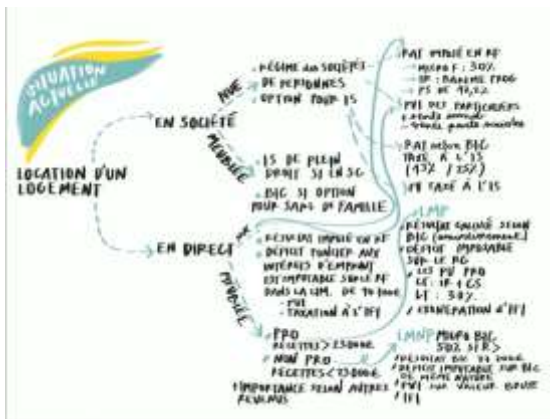 SITUATION
ACTUELLE
LOCATION D'UN
LOGEMENT
EN SOCIÉTÉ
NUE
• RÉGIME des SOCIÉTÉS
DE PERSONNES
• OPTION POUR IS
MEUBLÉE
• IS DE PLEIN
DROIT SI EN SC
• BIC SI OPTION
POUR SARL DE FAMILLE
EN DIRECT
NUE
• RÉSULTAT IMPOSÉ EN RF
• DÉFICIT FONCIER AUX
INTÉRÊTS D'EMPRUNT
EST IMPUTABLE SUR LE RF
DANS LA LIM. DE
- PVI
- TAXATION À L'IFI
MEUBLÉE
• PRO
RECETTES > 23000€
• NON PRO
RECETTES < 23000€
IMPORTANCE SELON AUTRES
REVENUS
RAT IMPOSÉ EN RF
- MICRO F : 30%
- IR : BARÈME PROG
- PS DE 17,2%
PVI DES PARTICULIERS
RAT selon BIC
TAXÉ À L'IS
(15% / 25%)
PV TAXÉ À L'IS
LMP
RÉSULTAT CALCULÉ SELON
BIC (amortissement)
• DÉFICIT IMPUTABLE
SUR LE RG
PV PRO
CT : IR + CS
LT : 30%
EXONÉRATION d'IFI
LMNP MICRO BIC
50%
DÉFICIT IMPUTABLE SUR BIC
DE MÊME NATURE
PVI SUR VALEUR
IFI